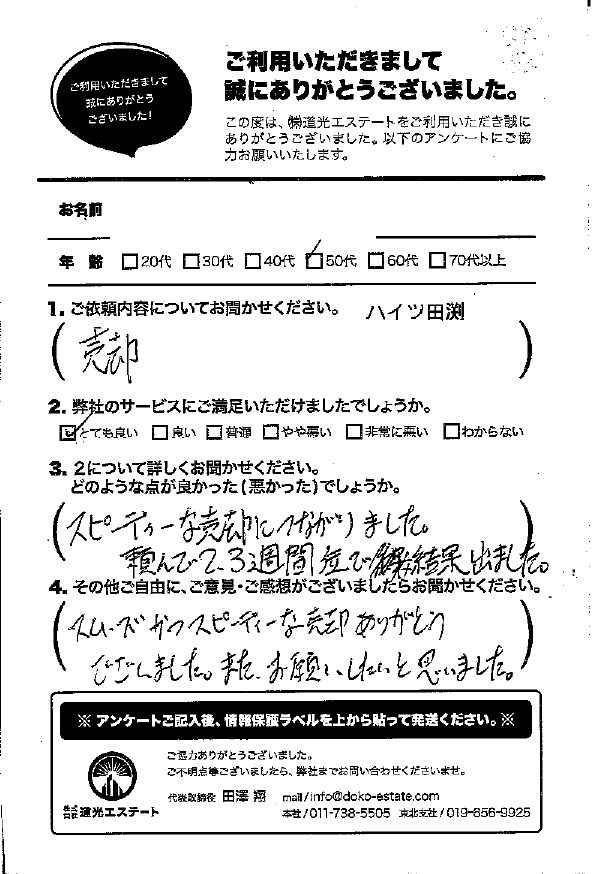 ご利用いただきまして
誠にありがとう
ございました！
ご利用いただきまして
誠にありがとうございました。
この度は、㈱道光エステートをご利用いただき誠に
ありがとうございました。以下のアンケートにご協
力お願いいたします。
お名前
年 齢 □20代 □30代 □40代 ☑50代 □60代 □70代以上
1. ご依頼内容についてお聞かせください。 ハイツ田渕
(売却)
2. 弊社のサービスにご満足いただけましたでしょうか。
☑とても良い □良い □普通 □やや悪い □非常に悪い □わからない
3. 2について詳しくお聞かせください。
どのような点が良かった(悪かった)でしょうか。
(スピーディーな売却につながりました。
頼んで2、3週間位で結果出ました。)
4. その他ご自由に、ご意見・ご感想がございましたらお聞かせください。
(スムーズかつスピーディーな売却ありがとう
ございました。また、お願いしたいと思いました。)
※ アンケートご記入後、情報保護ラベルを上から貼って発送ください。※
ご協力ありがとうございました。
ご不明点等ございましたら、弊社までお問い合わせくださいませ。
代表取締役 田澤 翔 mail/info@doko-estate.com
株式会社 道光エステート 本社/011-738-5505 東北支社/019-656-9925